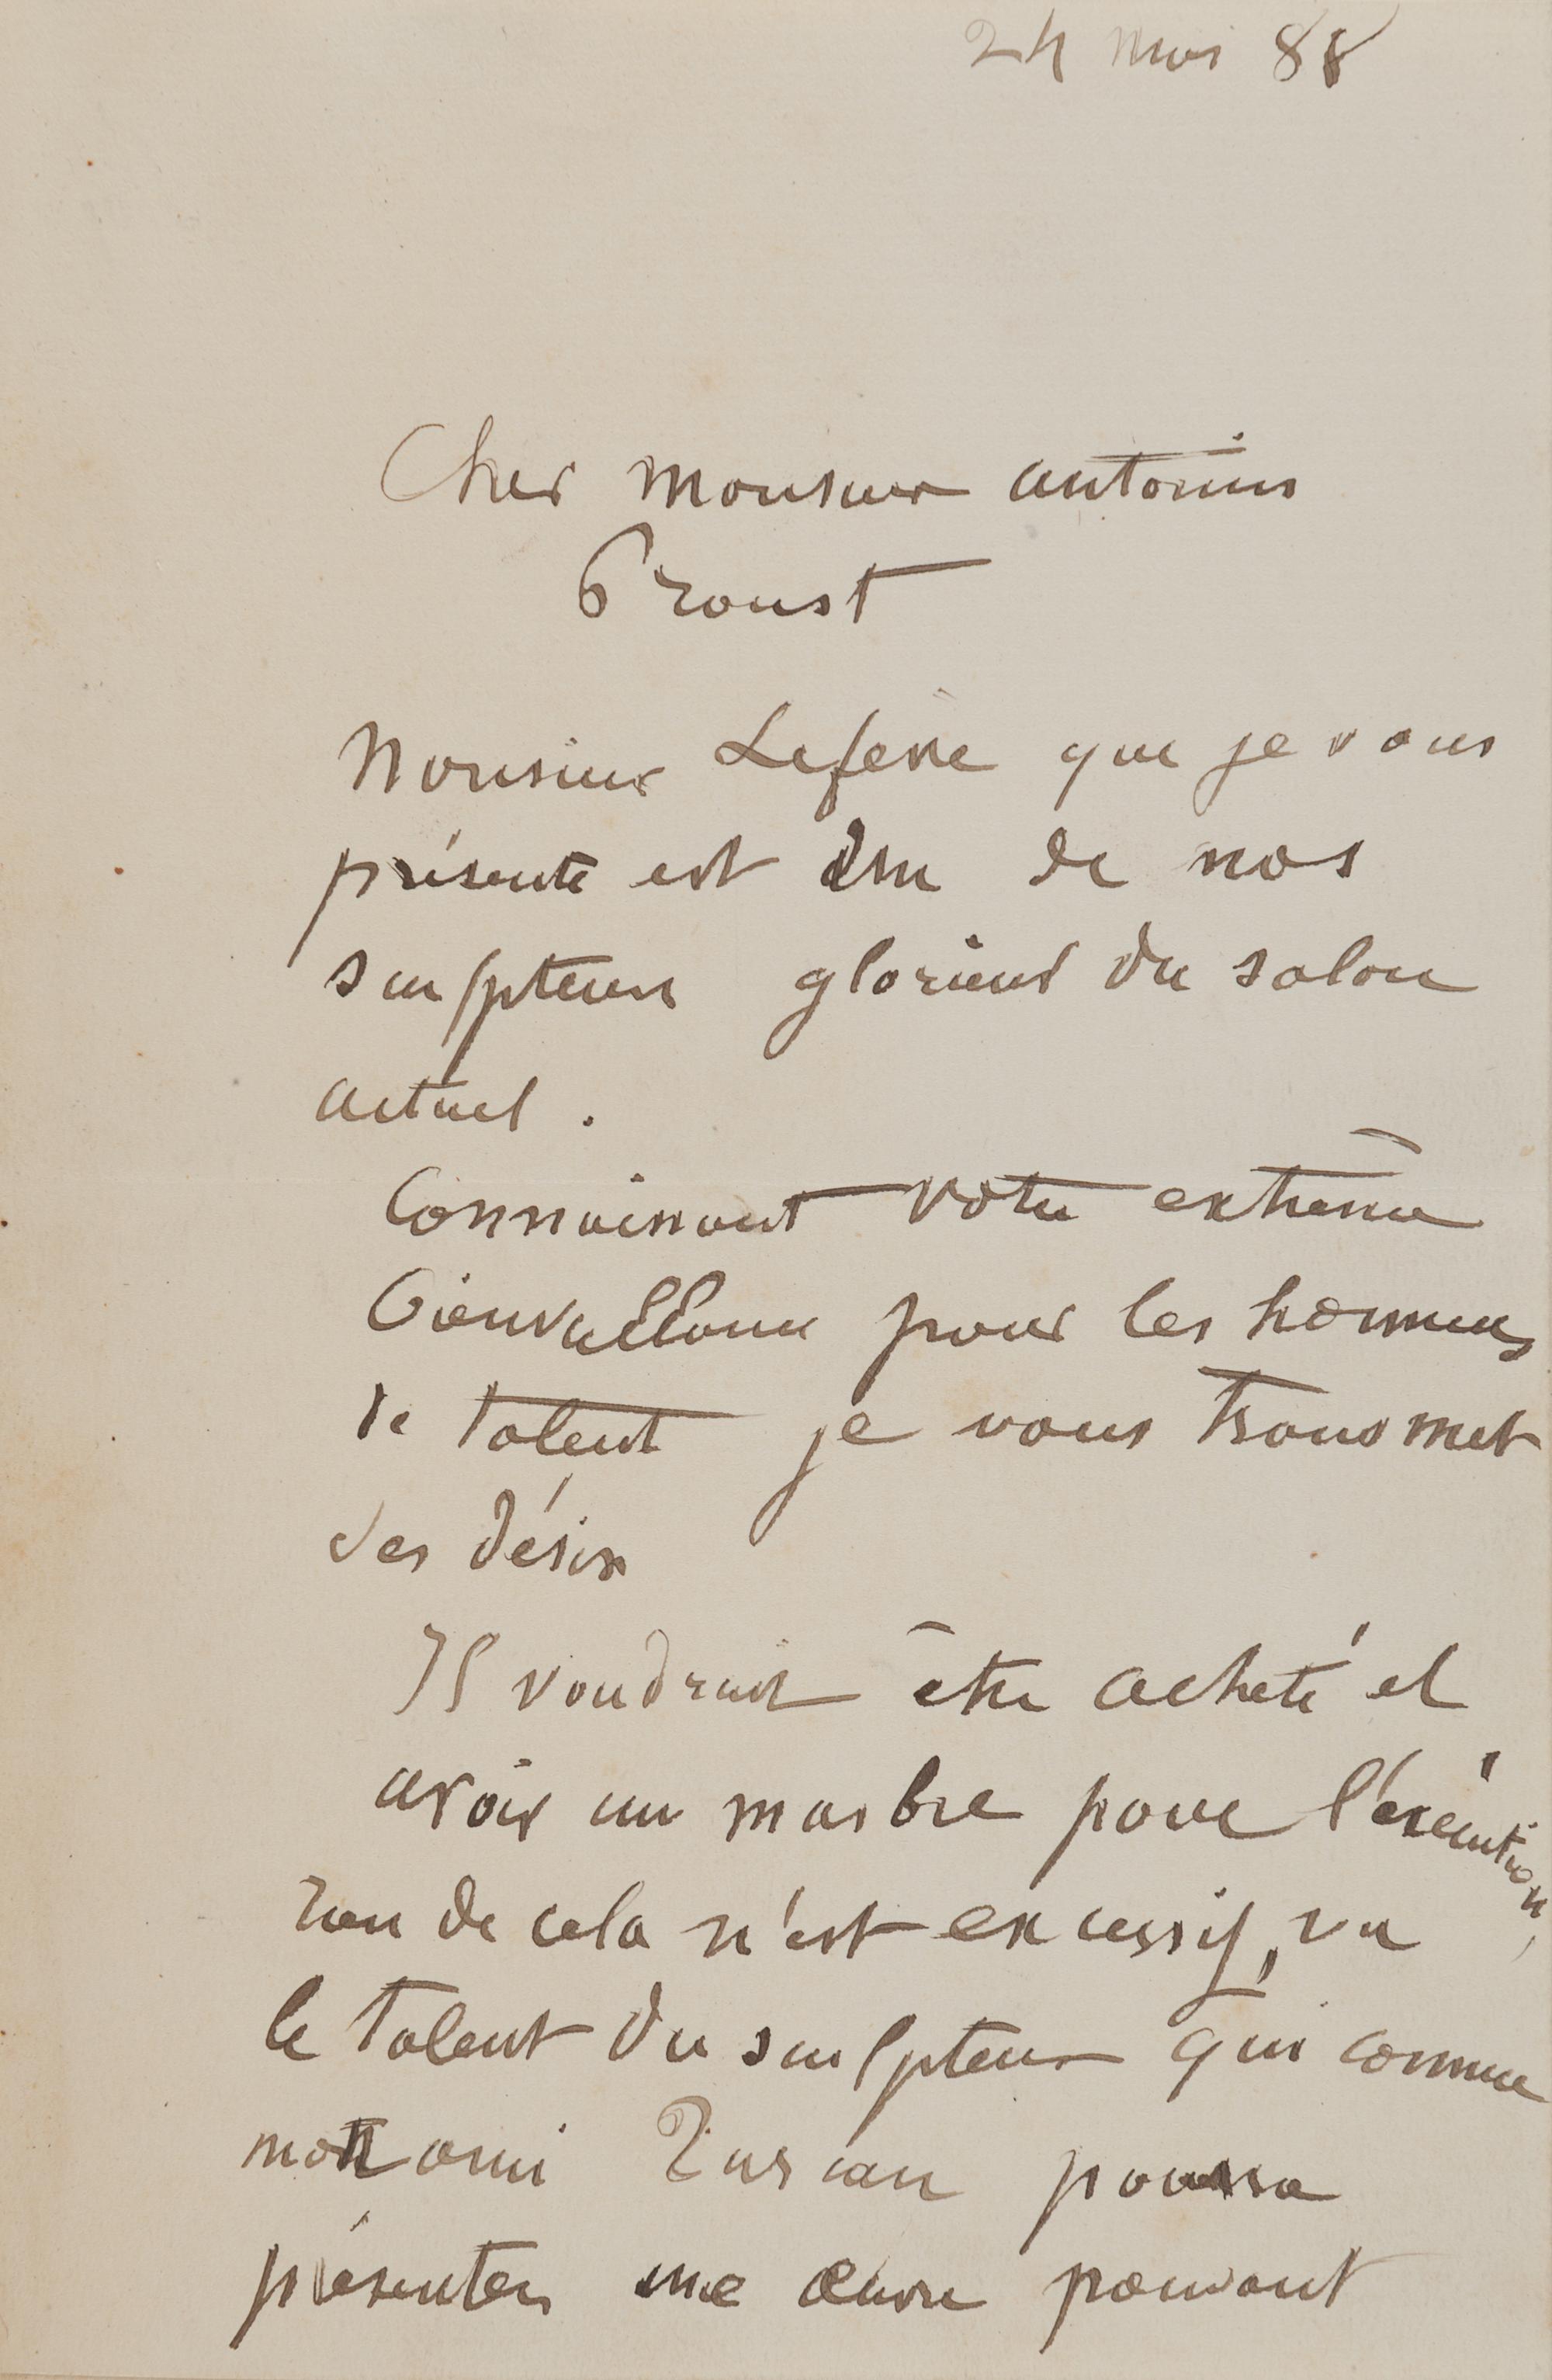 24 Mai 88
Cher Monsieur antonin
Proust
Monsieur Lefevre que je vous
présente est un de nos
sculpteurs glorieux du salon
actuel.
Connaissant votre extrême
bienveillance pour les hommes
de talent je vous transmet
ses désirs
Il voudrait être acheté et
avoir un marbre pour l'exécution,
rien de cela n'est excessif, vu
le talent du sculpteur qui comme
mon ami Turcan pourra
présenter une œuvre pouvant